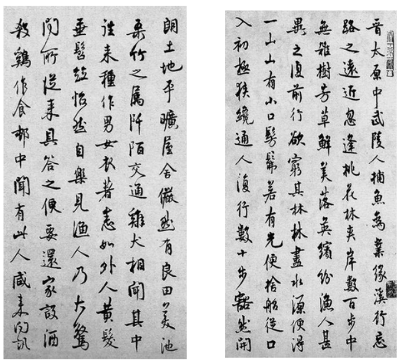 晉太原中武陵人捕魚為業緣溪行忘
路之遠近忽逢桃花林夾岸數百步中
無雜樹芳草鮮美落英繽紛漁人甚
異之復前行欲窮其林林盡水源便得
一山山有小口髣髴若有光便捨船從口
入初極狹纔通人復行數十步豁然開
朗土地平曠屋舍儼然有良田美池
桑竹之屬阡陌交通雞犬相聞其中
往來種作男女衣著悉如外人黃髮
垂髫並怡然自樂見漁人乃大驚
問所從來具答之便要還家設酒
殺鷄作食邨中聞有此人咸来問訊